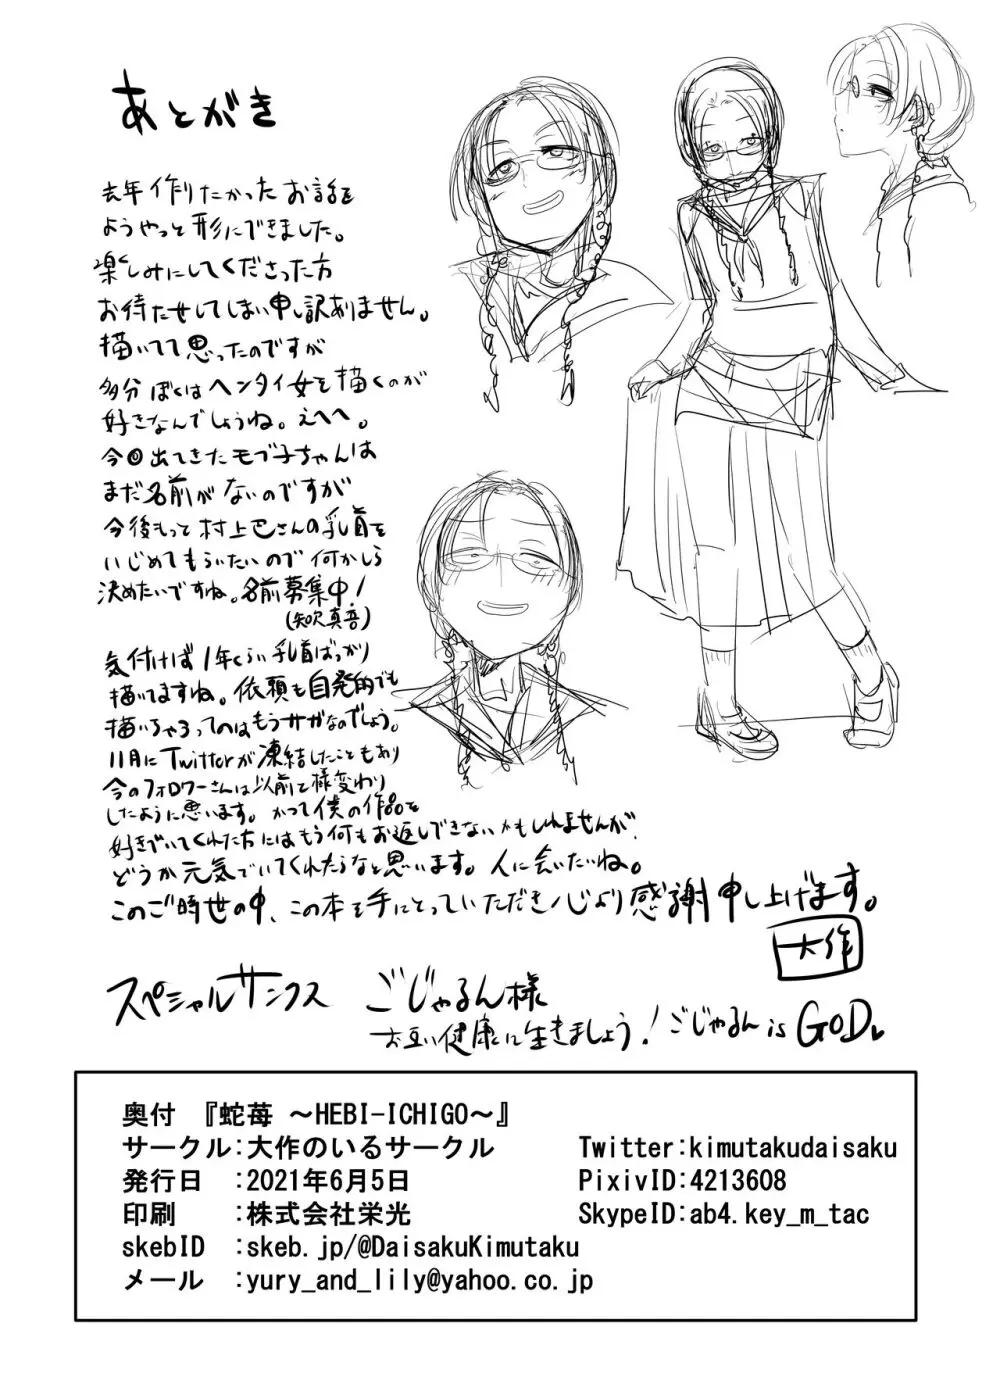 あとがき
去年作りたかったお話を
ようやっと形にできました。
楽しみにしてくださった方
お待たせしてしまい申し訳ありません。
描いてて思ったのですが
多分ぼくはヘンタイ女を描くのが
好きなんでしょうね。えへへ。
今回出てきたモブ子ちゃんは
まだ名前がないのですが
今後もって村上巴さんの乳首を
いじめてもらいたいので何かしら
決めたいですね。名前募集中!
気付けば1年くらい乳首ばっかり
描いてますね。依頼も自発的でも
描いちゃうってのはもうサガなのでしょう。
11月にTwitterが凍結したこともあり
今のフォロワーさんは以前と様変わり
したように思います。かつて僕の作品を
好きでいてくれた方にはもう何もお返しできないかもしれませんが、
どうか元気でいてくれたらなと思います。人に会いたいね。
このご時世の中、この本を手にとっていただき心より感謝申し上げます。
大作
スペシャルサンクス ごじゃるん様
お互い健康に生きましょう!ごじゃるん is GOD♥
奥付 『蛇苺 ~HEBI-ICHIGO~』
サークル:大作のいるサークル Twitter:kimutakudaisaku
発行日 :2021年6月5日 PixivID:4213608
印刷 :株式会社栄光 SkypeID:ab4.key_m_tac
skebID :skeb.jp/@DaisakuKimutaku
メール :yury_and_lily@yahoo.co.jp